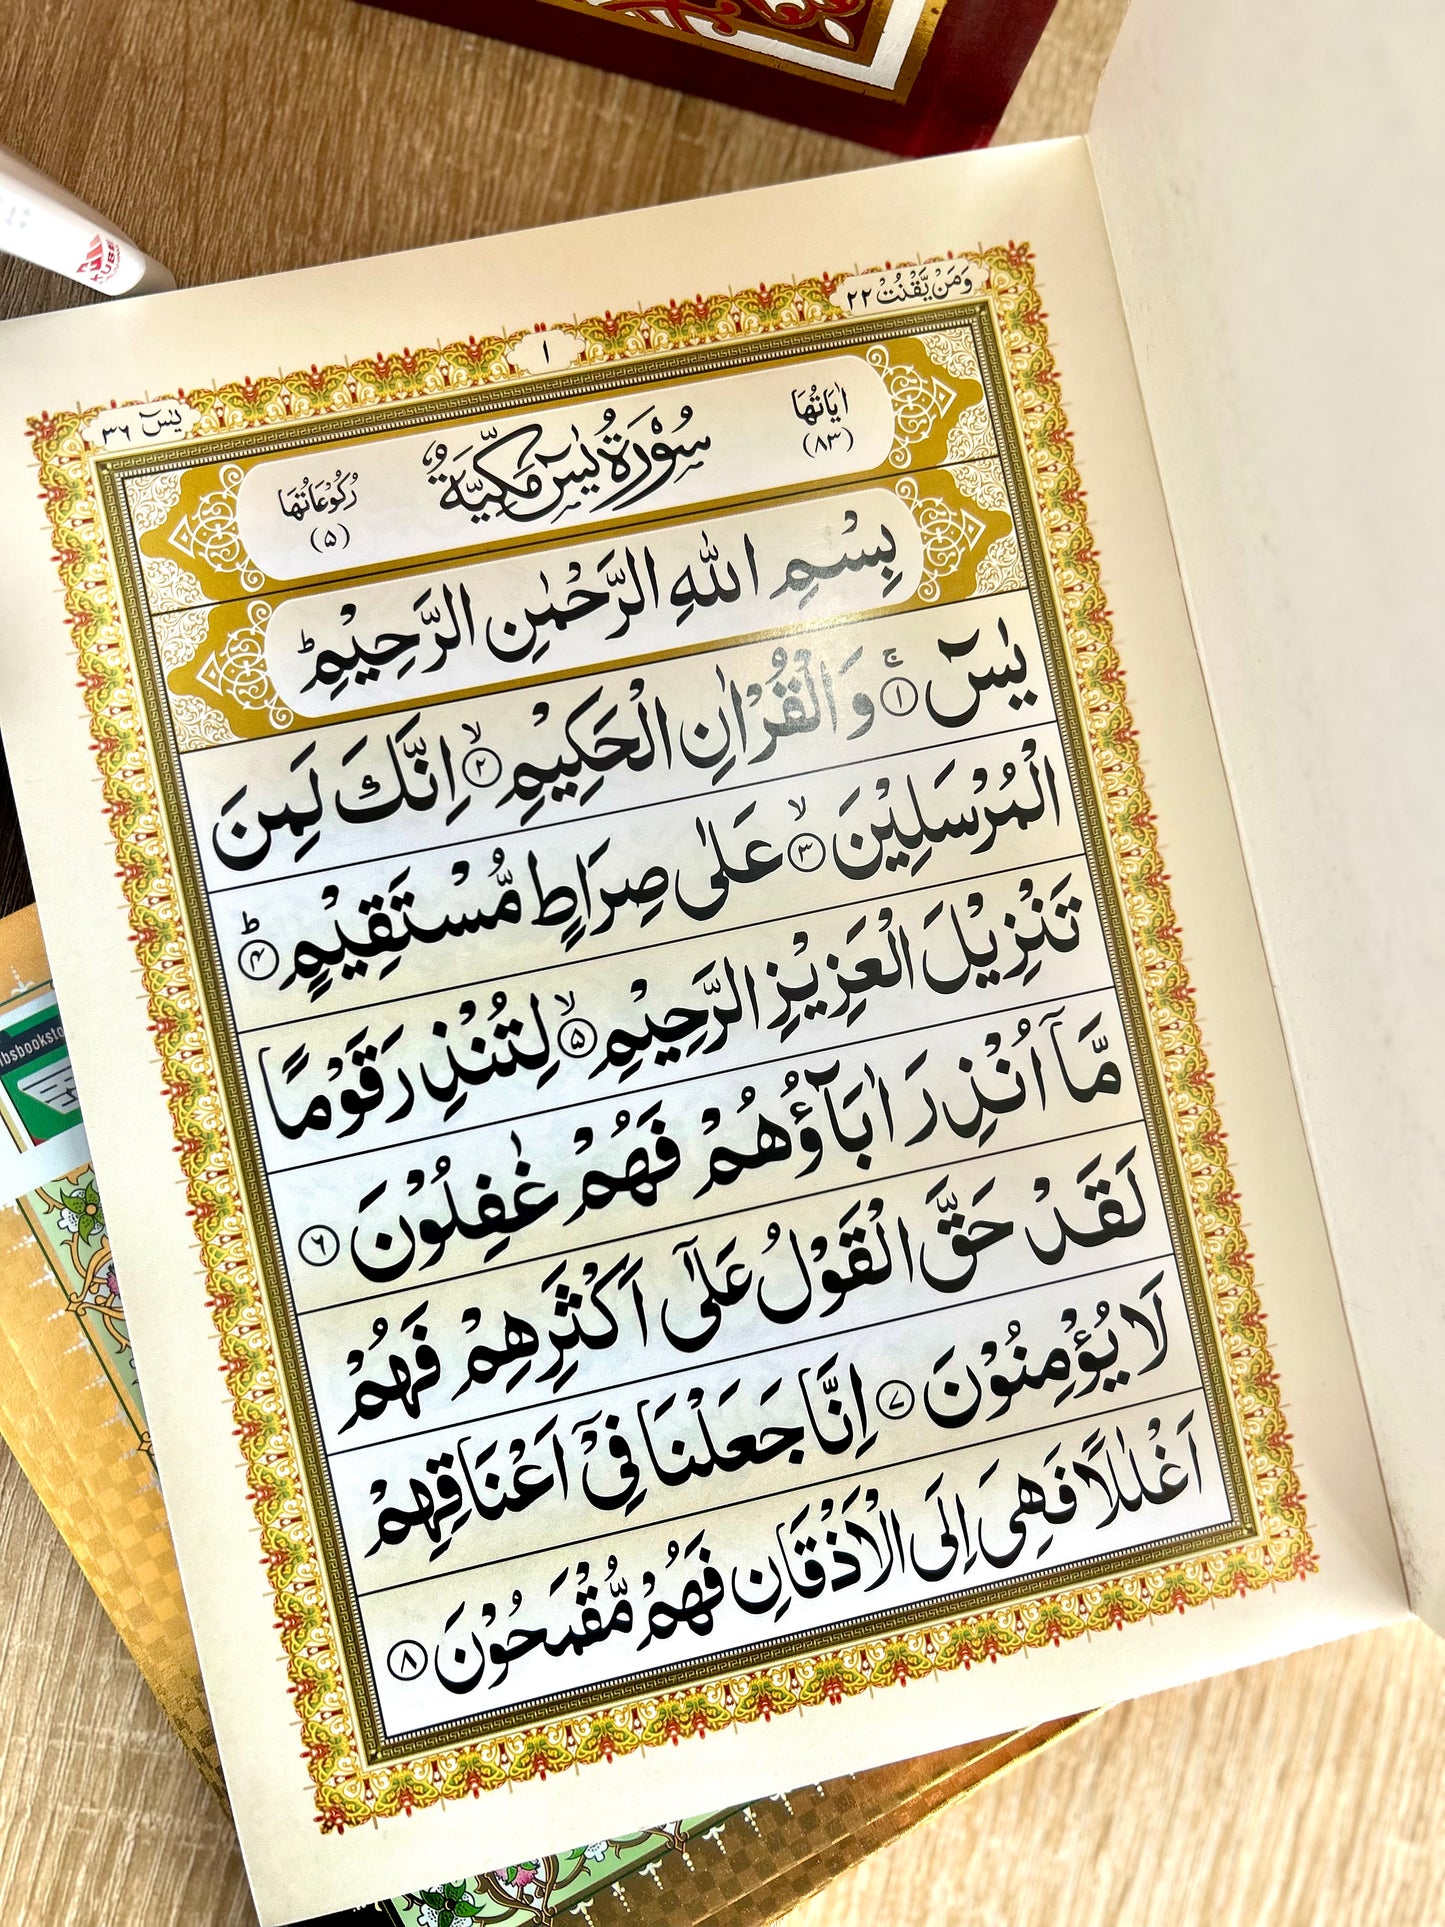 وَمَنْ يَّقْنُتْ ٢٢
١
يٰسٓ ٣٦
اٰيَاتُهَا
(٨٣)
سُوْرَةُ يٰسٓ مَكِّيَّةٌ
رُكُوْعَاتُهَا
(٥)
بِسْمِ اللّٰهِ الرَّحْمٰنِ الرَّحِيْمِ ؕ
يٰسٓ ۚ ١ وَالْقُرْاٰنِ الْحَكِيْمِ ۙ ٢ اِنَّكَ لَمِنَ
الْمُرْسَلِيْنَ ۙ ٣ عَلٰى صِرَاطٍ مُّسْتَقِيْمٍ ؕ ٤
تَنْزِيْلَ الْعَزِيْزِ الرَّحِيْمِ ۙ ٥ لِتُنْذِرَ قَوْمًا
مَّآ اُنْذِرَ اٰبَآؤُهُمْ فَهُمْ غٰفِلُوْنَ ٦
لَقَدْ حَقَّ الْقَوْلُ عَلٰٓى اَكْثَرِهِمْ فَهُمْ
لَا يُؤْمِنُوْنَ ٧ اِنَّا جَعَلْنَا فِيْٓ اَعْنَاقِهِمْ
اَغْلٰلًا فَهِىَ اِلَى الْاَذْقَانِ فَهُمْ مُّقْمَحُوْنَ ٨
KUBE